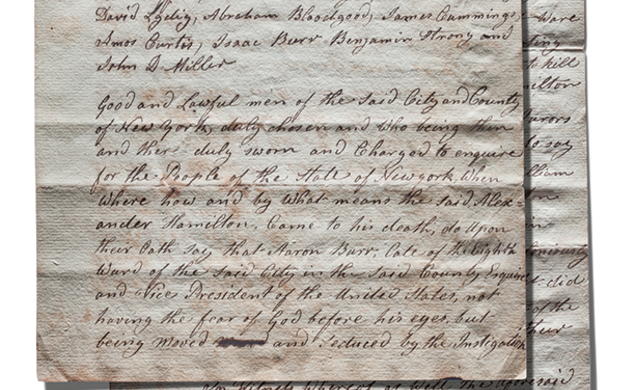 David Lydig, Abraham Bloodgood, James Cummings,
Amos Curtis, Isaac Burr Benjamin Strong and
John D Miller
Good and Lawful men of the said City and County
of New York, duly chosen and who being then
and ther duly sworn and Charged to enquire
for the People of the State of Newyork, When
Where how and by What means the said Alex-
ander Hamilton, Came to his death, do Upon
their Oath say that Aaron Burr, Late of the Eighth
Ward of the said City in the said County Esquire
and Vice President of the United States, not
having the fear of God before his eyes, but
being moved and seduced by the Instigation
Ware
to kill
milton
urors
to say
lliam
in
did
of the
their
aforesaid